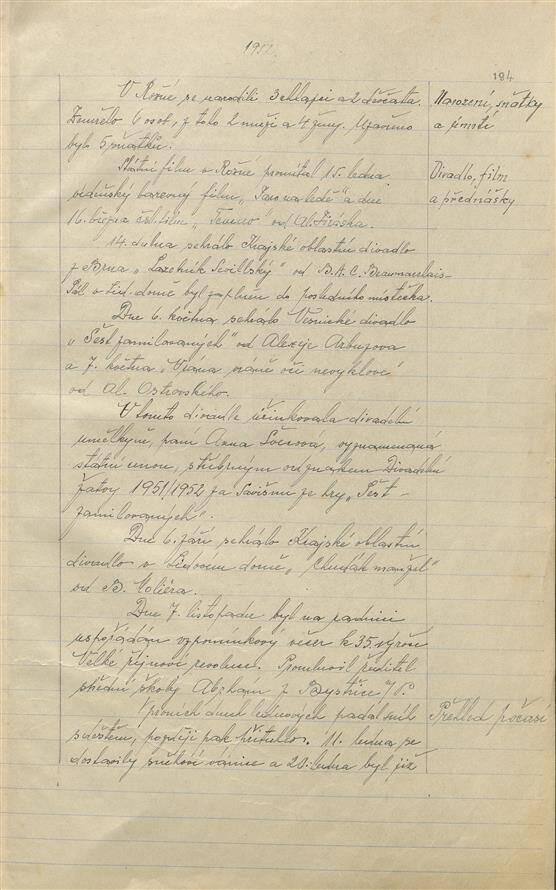 1952.
184
V Rožné se narodili 3 chlapci a 2 děvčata.
Zemřelo 6 osob, z toho 2 muži a 4 ženy. Uzavřeno
bylo 5 sňatků.
Narození, sňatky
a úmrtí
Státní film v Rožné promítal 15. ledna
barevný film „Jaro na ledě" a dne
16. března čsl. film „Temno" od Al. Jiráska.
Divadlo, film
a přednášky
14. dubna sehrálo Krajské oblastní divadlo
z Brna „Lazebník Sevillský" od B. A. C. Beaumarchais-
Sál v Lid. domě byl zaplněn do posledního místečka.
Dne 6. května sehrálo Vesnické divadlo
„Šest zamilovaných" od Alexeje Arbuzova
a 7. května „Vrána vráně oči nevyklove"
od Al. Ostrovského.
V tomto divadle účinkovala divadelní
umělkyně, paní Anna vyznamenaná
státní cenou, stříbrným odznakem Divadelní
žatvy 1951/1952 za ze hry „Šest -
zamilovaných".
Dne 6. září sehrálo Krajské oblastní
divadlo v Lidovém domě „Chudák manžel"
od B. Moliéra.
Dne 7. listopadu byl na radnici
uspořádán vzpomínkový večer k 35. výročí
Velké říjnové revoluce. Promluvil ředitel
střední školy z Bystřice n/P.
V prvních dnech lednových padal sníh
s deštěm, později pak přituhlo. 11. ledna se
dostavily sněhové vánice a 20. ledna byl již
Přehled počasí